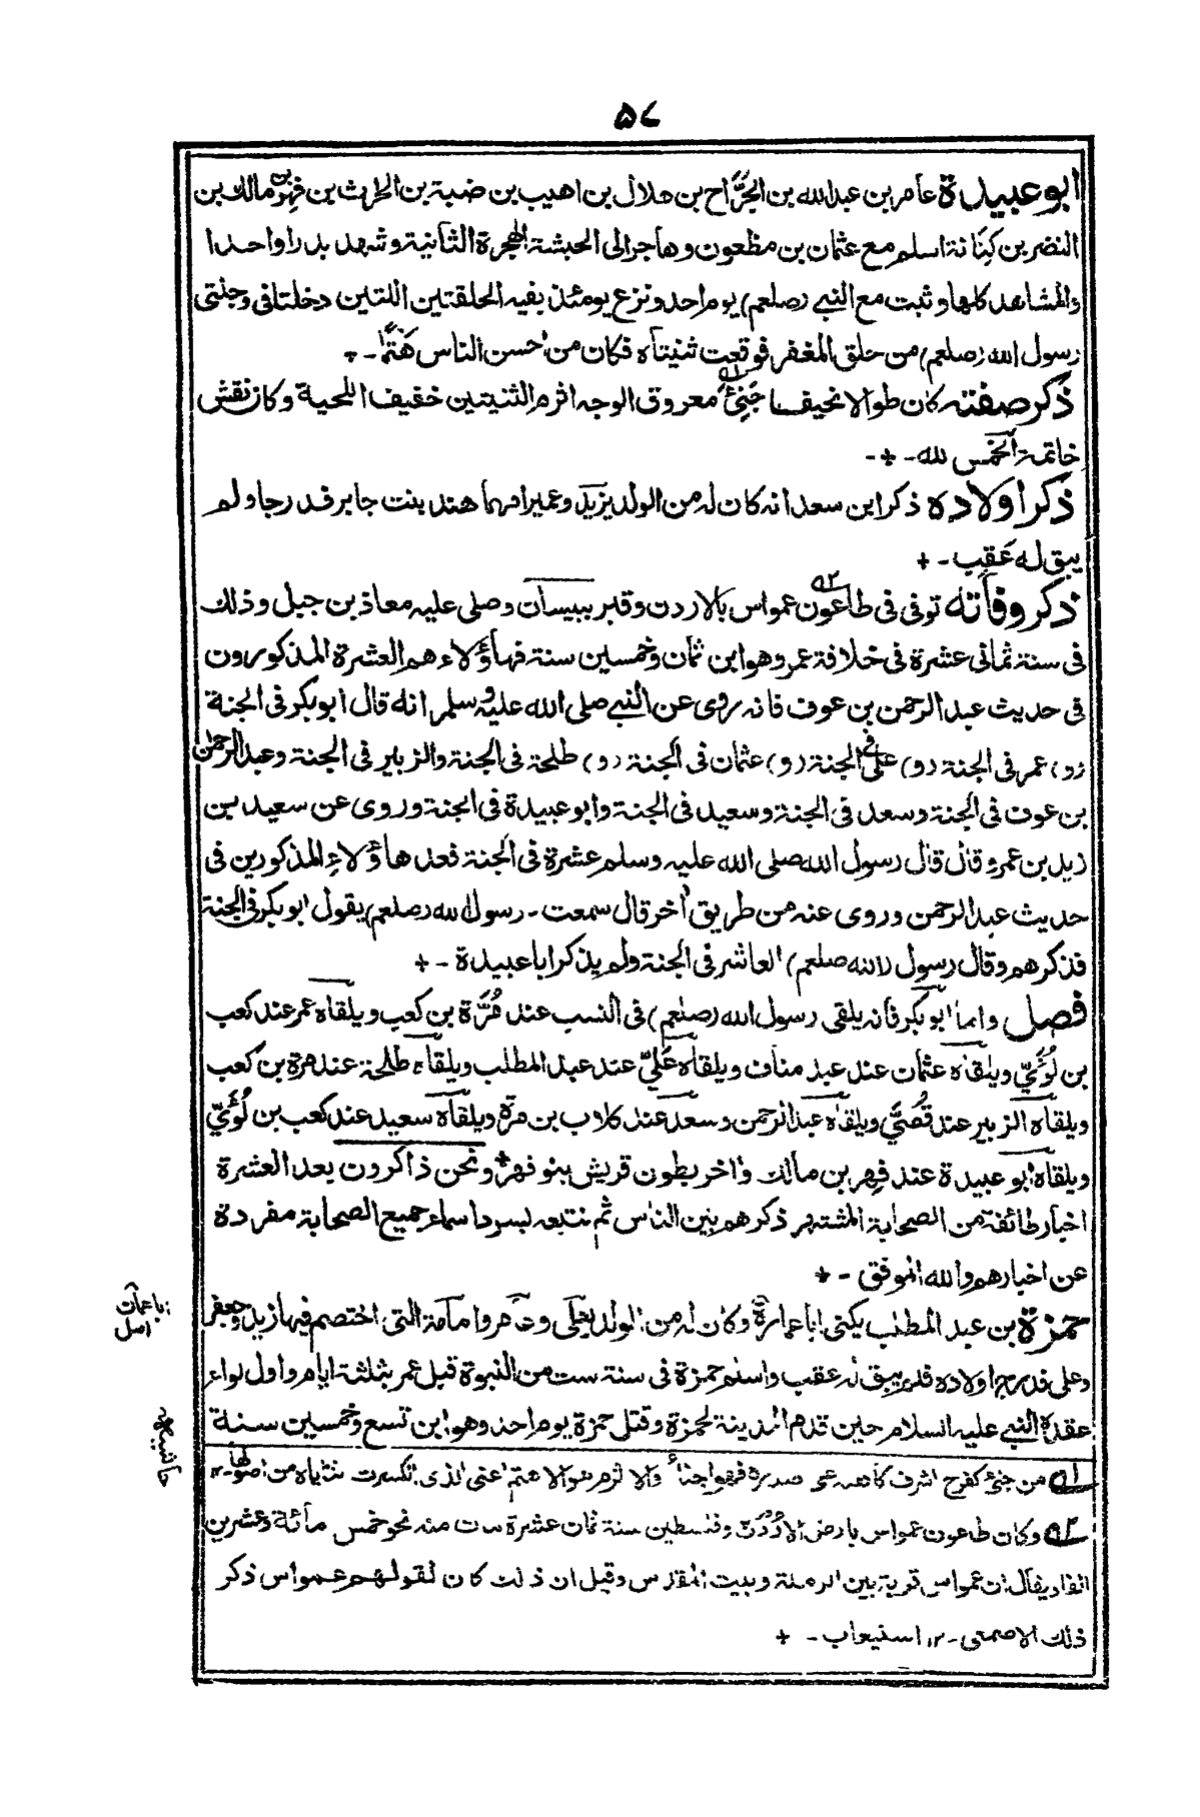 ٥٧
ابو عبيدة عامر بن عبدالله بن الجَرَّاح بن هلال بن اهيب بن ضبة بن الحارث بن فهر بن مالك بن
النضر بن كِنَانة اسلم مع عثمان بن مظعون وهاجر الى الحبشة الهجرة الثانية وشهد بدرا واحدا
والمشاهد كلها وثبت مع النبي (صلعم) يوم احد ونزع يومئذ بفيه الحلقتين اللتين دخلتا فى وجنتى
رسول الله (صلعم) من حلق المغفر فوقعت ثنيتاه فكان من احسن الناس هَتَمًا - +
ذكر صفته كان طوالا نحيفا جَنِئً ١ معروق الوجه اثرم الثنيتين خفيف اللحية وكان نقش
خاتمة الخمس لله - + -
ذكر اولاده ذكر ابن سعد انه كان له من الولد يزيد وعمير امهما هند بنت جابر فدرجا ولم
يبق له عَقِب - +
ذكر وفاته توفى فى طاعون ٢ عمواس بالاردن وقبر ببيسان وصلى عليه معاذ بن جبل وذلك
فى سنة ثمانى عشرة فى خلافة عمر وهو ابن ثمان وخمسين سنة فهاؤلاء هم العشرة المذكورون
فى حديث عبد الرحمن بن عوف فانه روى عن النبي صلى الله عليه وسلم انه قال ابوبكر فى الجنة
(و) عمر فى الجنة (و) على فى الجنة (و) عثمان فى الجنة (و) طلحة فى الجنة والزبير فى الجنة وعبد الرحمن
بن عوف فى الجنة وسعد فى الجنة وسعيد فى الجنة وابو عبيدة فى الجنة وروى عن سعيد بن
زيد بن عمرو قال قال رسول الله صلى الله عليه وسلم عشرة فى الجنة فعد هاؤلاء المذكورين فى
حديث عبد الرحمن وروى عنه من طريق أخر قال سمعت - رسول الله (صلعم) يقول ابوبكر فى الجنة
فذكرهم وقال رسول (الله صلعم) العاشر فى الجنة ولم يذكر ابا عبيدة - +
فصل واما ابوبكر فانه يلقى رسول الله (صلعم) فى النسب عند مُرَّة بن كعب ويلقاه عمر عند كعب
بن لُؤَيّ ويلقاه عثمان عند عبد مناف ويلقاه عَلِيّ عند عبد المطلب ويلقاه طلحة عند مرة بن كعب
ويلقاه الزبير عند قُصَيّ ويلقاه عبد الرحمن وسعد عند كلاب بن مرة ويلقاه سعيد عند كعب بن لُؤَيّ
ويلقاه ابو عبيدة عند فِهر بن مالك واخر بطون قريش بنو فهر + ونحن ذاكرون بعد العشرة
اخبار طائفة من الصحابة المشتهر ذكرهم بين الناس ثم نتبعه بسرد اسماء جميع الصحابة مفردة
عن اخبارهم والله الموفق - +
حمزة بن عبد المطلب يكنى ابا عمارة وكان له من الولد يعلى وعامر وامامة التى اختصم فيها زيد وجعفر
وعلى فدرج اولاده فلم يبق له عقب واسلم حمزة فى سنة ست من النبوة قبل عمر بثلثة ايام واول لواء
عقده النبي عليه السلام حين قدم المدينة لحمزة وقتل حمزة يوم احد وهو ابن تسع وخمسين سنة
١ من جنئ كفرح اشرف كاهله على صدره فهو اجنأ والاثرم هو الاهتم اعنى الذى انكسرت ثناياه من اصولها - ١٢
٢ وكان طاعون عمواس بارض الاردن وفلسطين سنة ثمان عشرة مات منه نحو خمس مائة وعشرين
الفا ويقال ان عمواس قرية بين الرملة وبيت المقدس وقيل ان ذلك كان لقولهم عم واس ذكر
ذلك الاصمعى - ١٢ استيعاب - +
اصل
حاشيه